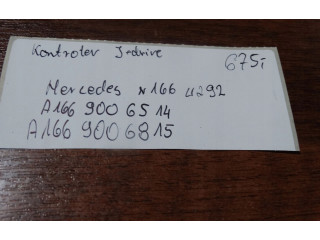 Kontroler I-drive
675,-
Mercedes W166 W292
A166 900 65 14
A166 900 68 15